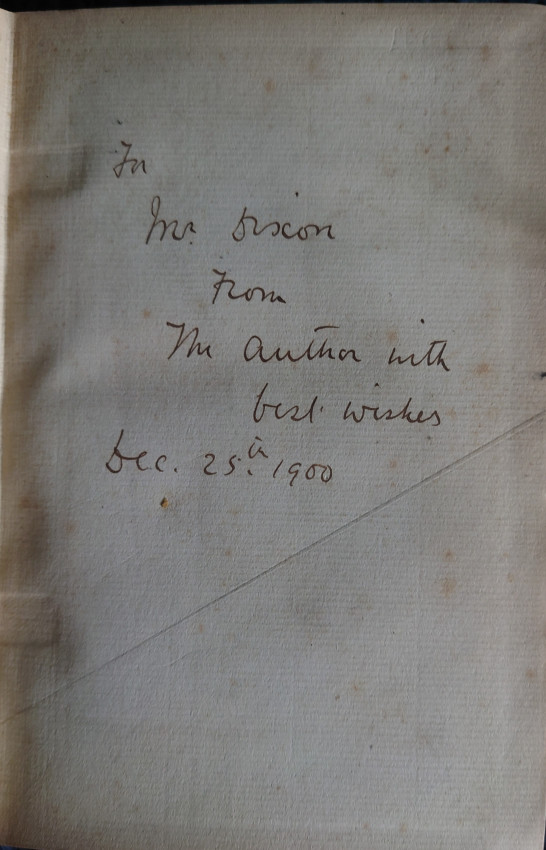 For
Mr. Dixon
From
The author with
best wishes
Dec. 25th. 1900